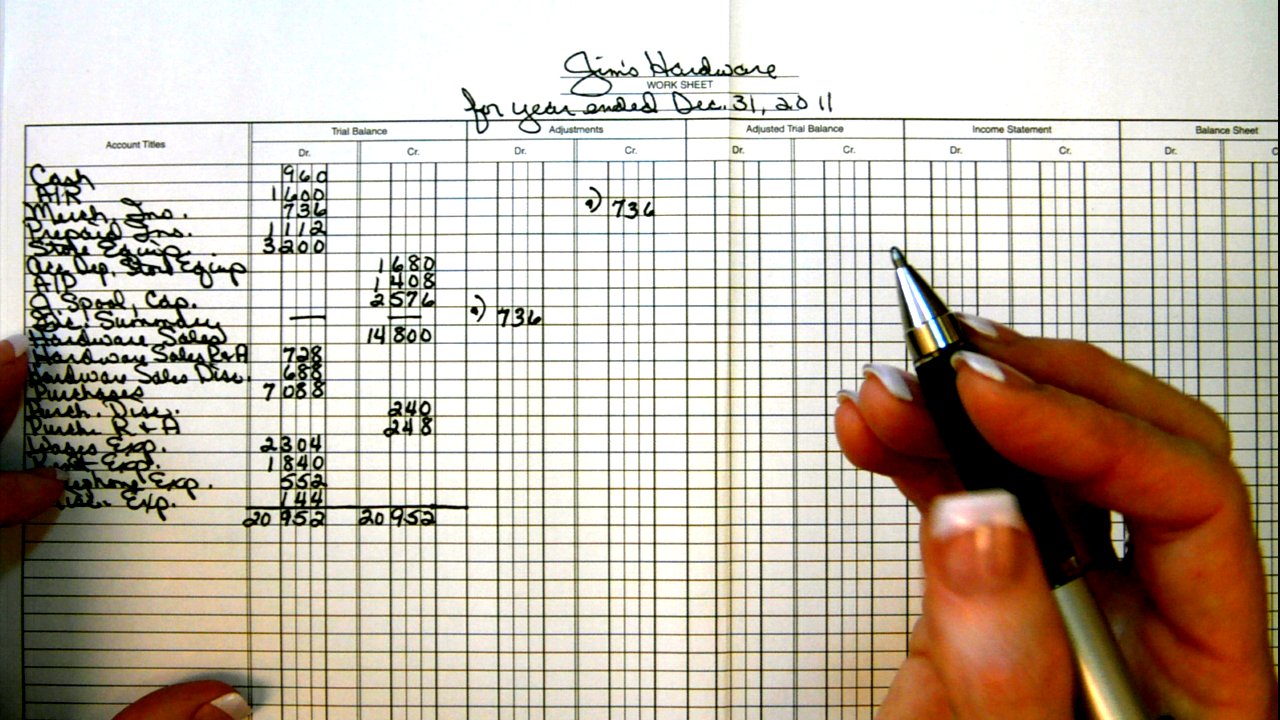 Jim's Hardware
WORK SHEET
for year ended Dec. 31, 2011
Account Titles Trial Balance Adjustments Adjusted Trial Balance Income Statement Balance Sheet
Dr. Cr. Dr. Cr. Dr. Cr. Dr. Cr. Dr. C
Cash 960
A/R 1600
Merch. Ins. 736 a) 736
Prepaid Ins. 1112
Store Equip. 3200
Acc. Dep. Store Equip 1680
A/P 1408
J. Spool, Cap. 2576
Inc. Summary — — a) 736
Hardware Sales 14800
Hardware Sales R+A 728
Hardware Sales Disc. 688
Purchases 7088
Purch. Disc. 240
Purch. R+A 248
Wages Exp. 2304
Rent Exp. 1840
Exp. 552
Exp. 144
20952 20952